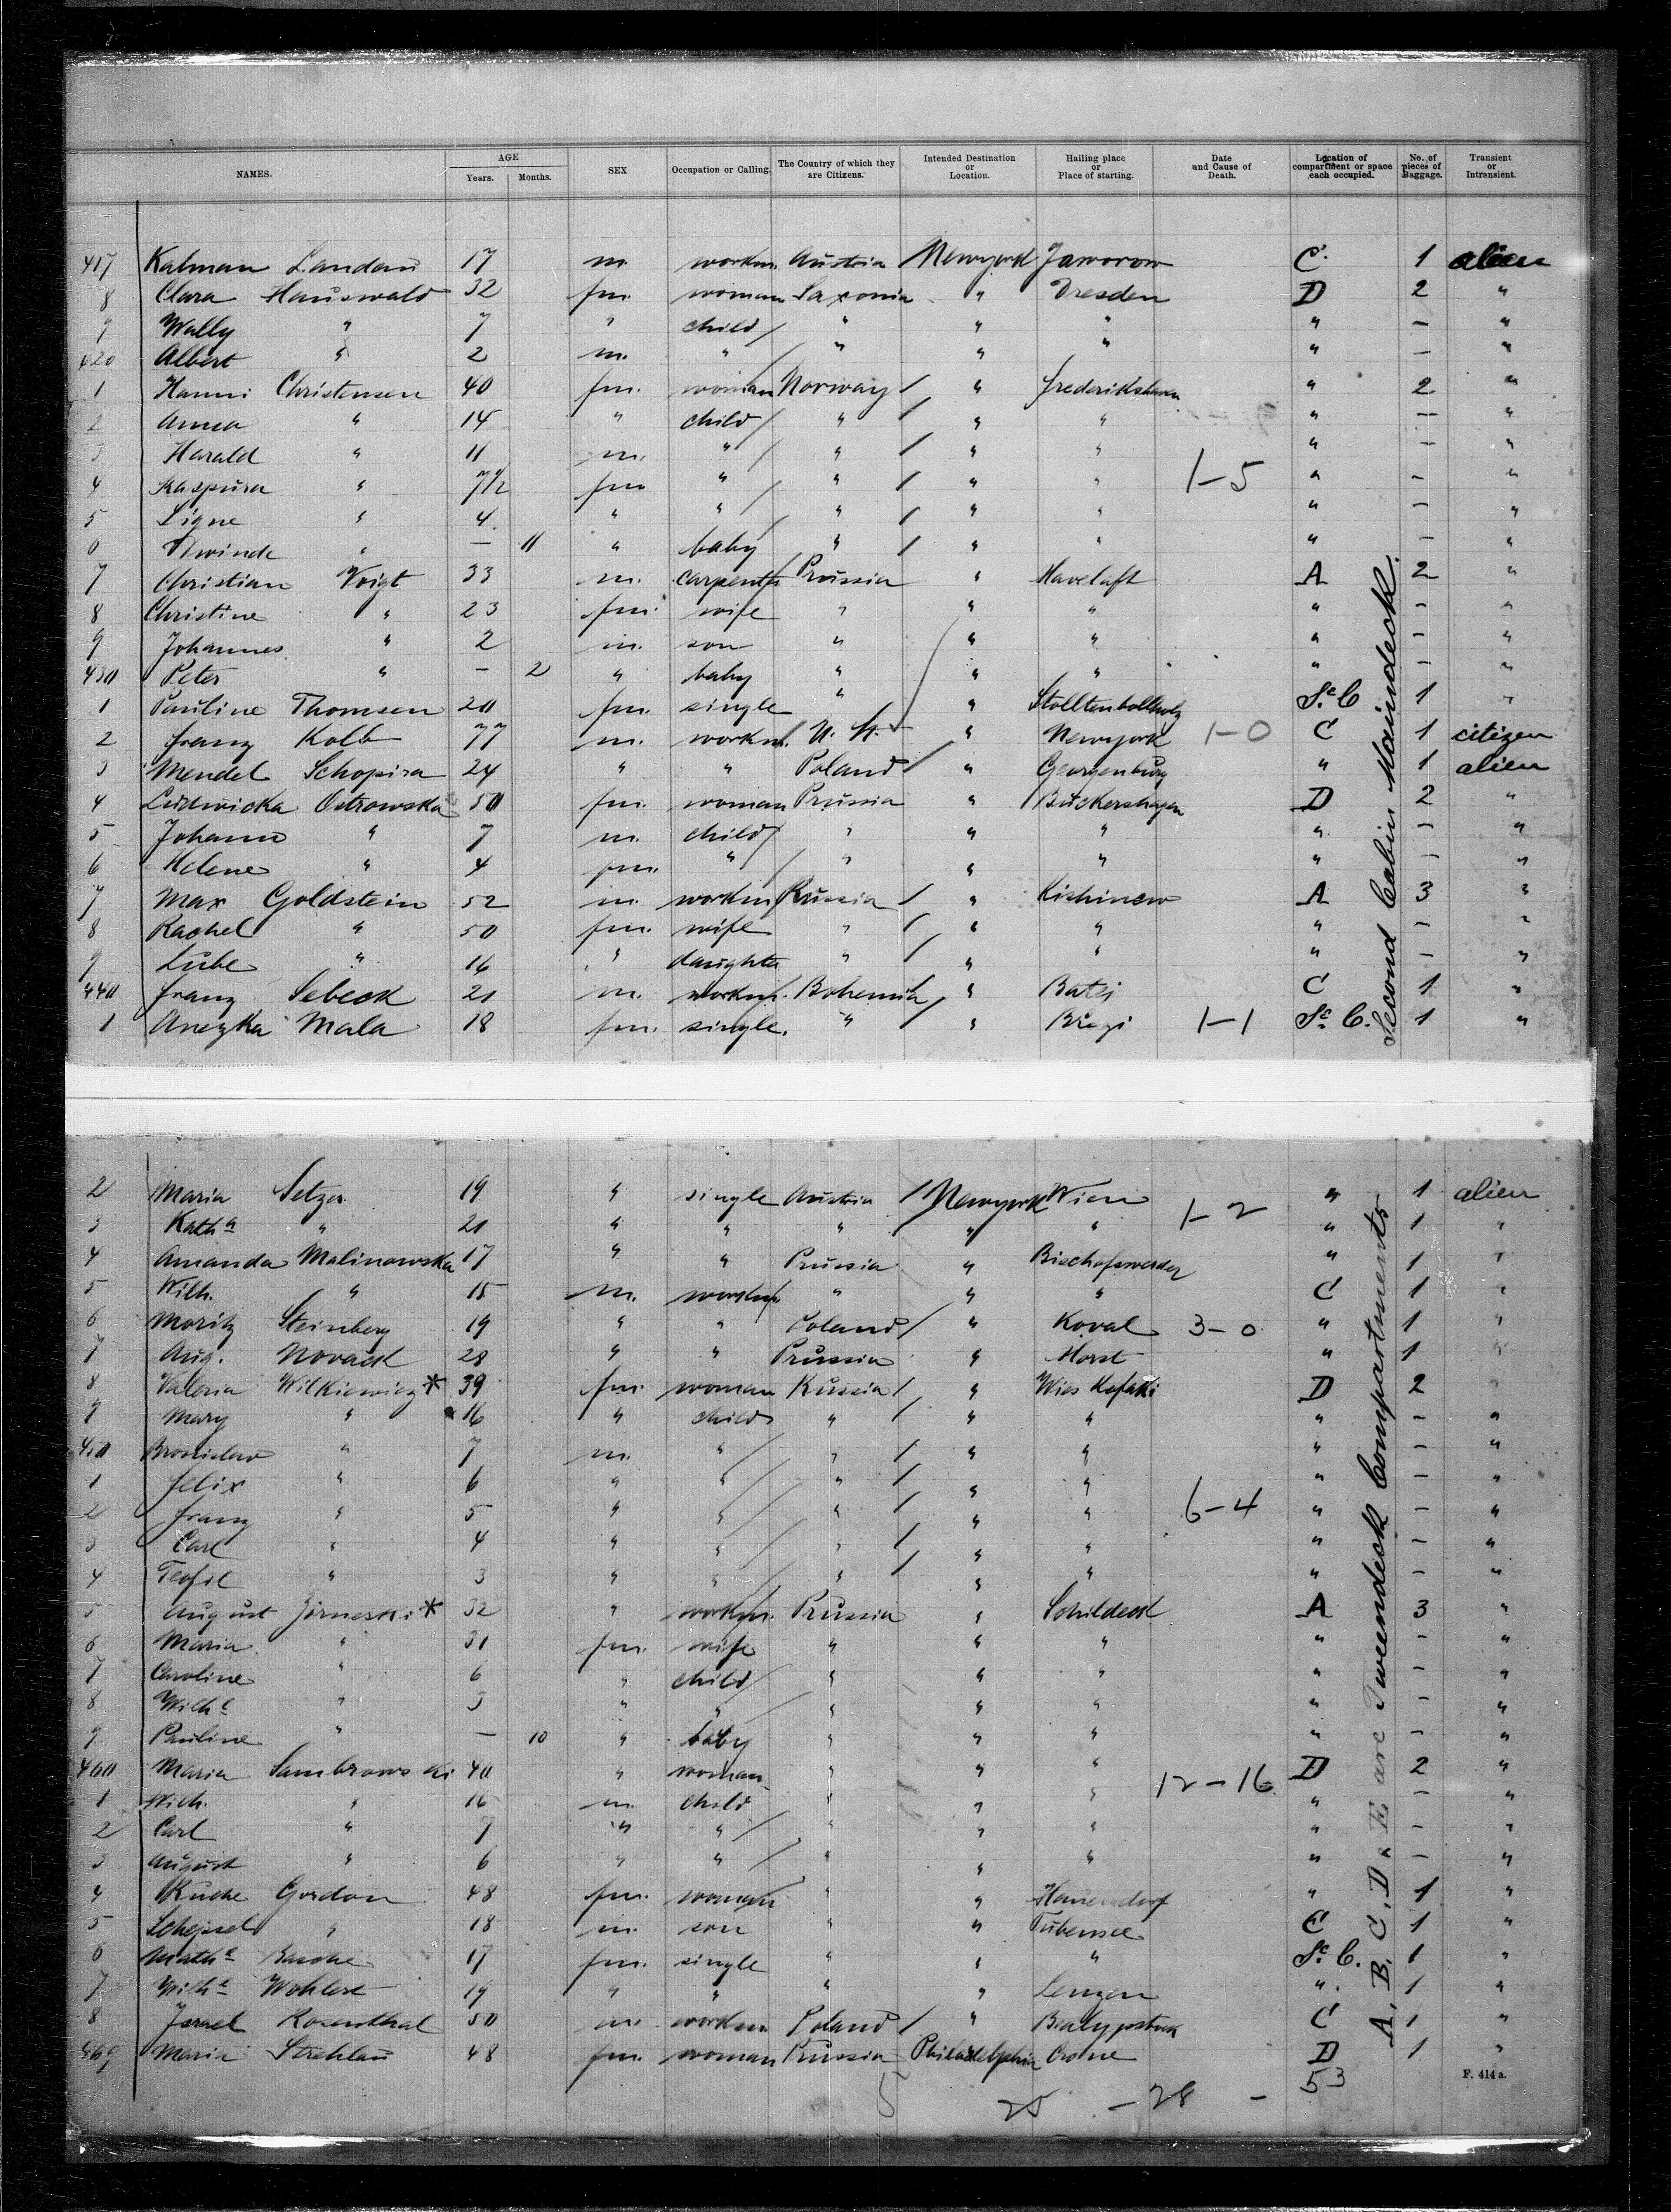 NAMES. AGE Years. Months. SEX Occupation or Calling. The Country of which they are Citizens. Intended Destination or Location. Hailing place or Place of starting. Date and Cause of Death. Location of compartment or space each occupied. No. of pieces of Baggage. Transient or Intransient.
417 Kalman Landau 17 m. workm. Austria Newyork Jaworow C. 1 alien
8 Clara Hauswald 32 fm. woman Saxonia " Dresden D 2 "
9 Wally " 7 " child " " " " — "
420 Albert " 2 m. " " " " " — "
1 Hanni Christensen 40 fm. woman Norway " Frederikshavn " 2 "
2 Anna " 14 " child " " " " — "
3 Harald " 11 m. " " " " " — "
4 " 7½ fm " " " " 1-5 " — "
5 Signe " 4 " " " " " " — "
6 " — 11 " baby " " " " — "
7 Christian Voigt 33 m. carpenter Prussia " Haveloft A 2 "
8 Christine " 23 fm. wife " " " " — "
9 Johannes " 2 m. son " " " " — "
430 Peter " — 2 " baby " " " " — "
1 Pauline Thomsen 20 fm. single " " Sc. C 1 "
2 Franz Kolb 77 m. workm. U. St. " Newyork 1-0 C 1 citizen
3 Mendel Schapira 24 " " Poland " Georgenburg " 1 alien
4 Ludwicka Ostrowska 50 fm. woman Prussia " Buckershagen D 2 "
5 Johann " 7 m. child " " " " — "
6 Helene " 4 fm. " " " " " — "
7 Max Goldstein 52 m. workm Russia " Kishinew A 3 "
8 Rachel " 50 fm. wife " " " " — "
9 Lube " 16 " daughter " " " " — "
440 Franz Sebeck 21 m. workm. Bohemia " Batej C 1 "
1 Anezka Mala 18 fm. single. " " 1-1 Sc. C. 1 "
Second Cabin Maindeck.
2 Maria Setzer 19 " single Austria Newyork Wien 1-2 " 1 alien
3 Katha " 21 " " " " " " 1 "
4 Amanda Malinowska 17 " " Prussia " Bischofswerder " 1 "
5 Wilh. " 15 m. workm. " " " C 1 "
6 Moritz Steinberg 19 " " Poland " Koval 3-0 " 1 "
7 Aug. Novack 28 " " Prussia " Horst " 1 "
8 Valeria Wilkiewicz * 39 fm. woman Russia " D 2 "
9 Mary " 16 " child " " " " — "
450 Bronislav " 7 m. " " " " " — "
1 Felix " 6 " " " " " " — "
2 Franz " 5 " " " " " 6-4 " — "
3 Carl " 4 " " " " " " — "
4 Teofil " 3 " " " " " " — "
5 August * 32 " workm. Prussia " Schildeck A 3 "
6 Maria " 31 fm. wife " " " " — "
7 Caroline " 6 " child " " " " — "
8 Wilhe " 3 " " " " " " — "
9 Pauline " — 10 " baby " " " " — "
460 Maria Sambrowski 40 " woman " " " 12-16 D 2 "
1 Wilh. " 16 m. child " " " " — "
2 Carl " 7 " " " " " " — "
3 August " 6 " " " " " " — "
4 Gordon 48 fm. woman " " " 1 "
5 Schepsel " 18 m. son " " C 1 "
6 Mathe 17 fm. single " " " Sc. C. 1 "
7 Wilhe Wohlert 19 " " " " Lenzen " 1 "
8 Israel Rosenthal 50 m. workm. Poland " C 1 "
469 Maria Strehlau 48 fm. woman Prussia Philadelphia Crone D 1 "
A, B, C, D & E are Tweendeck Compartments
25 — 28 — 53
F. 414 a.